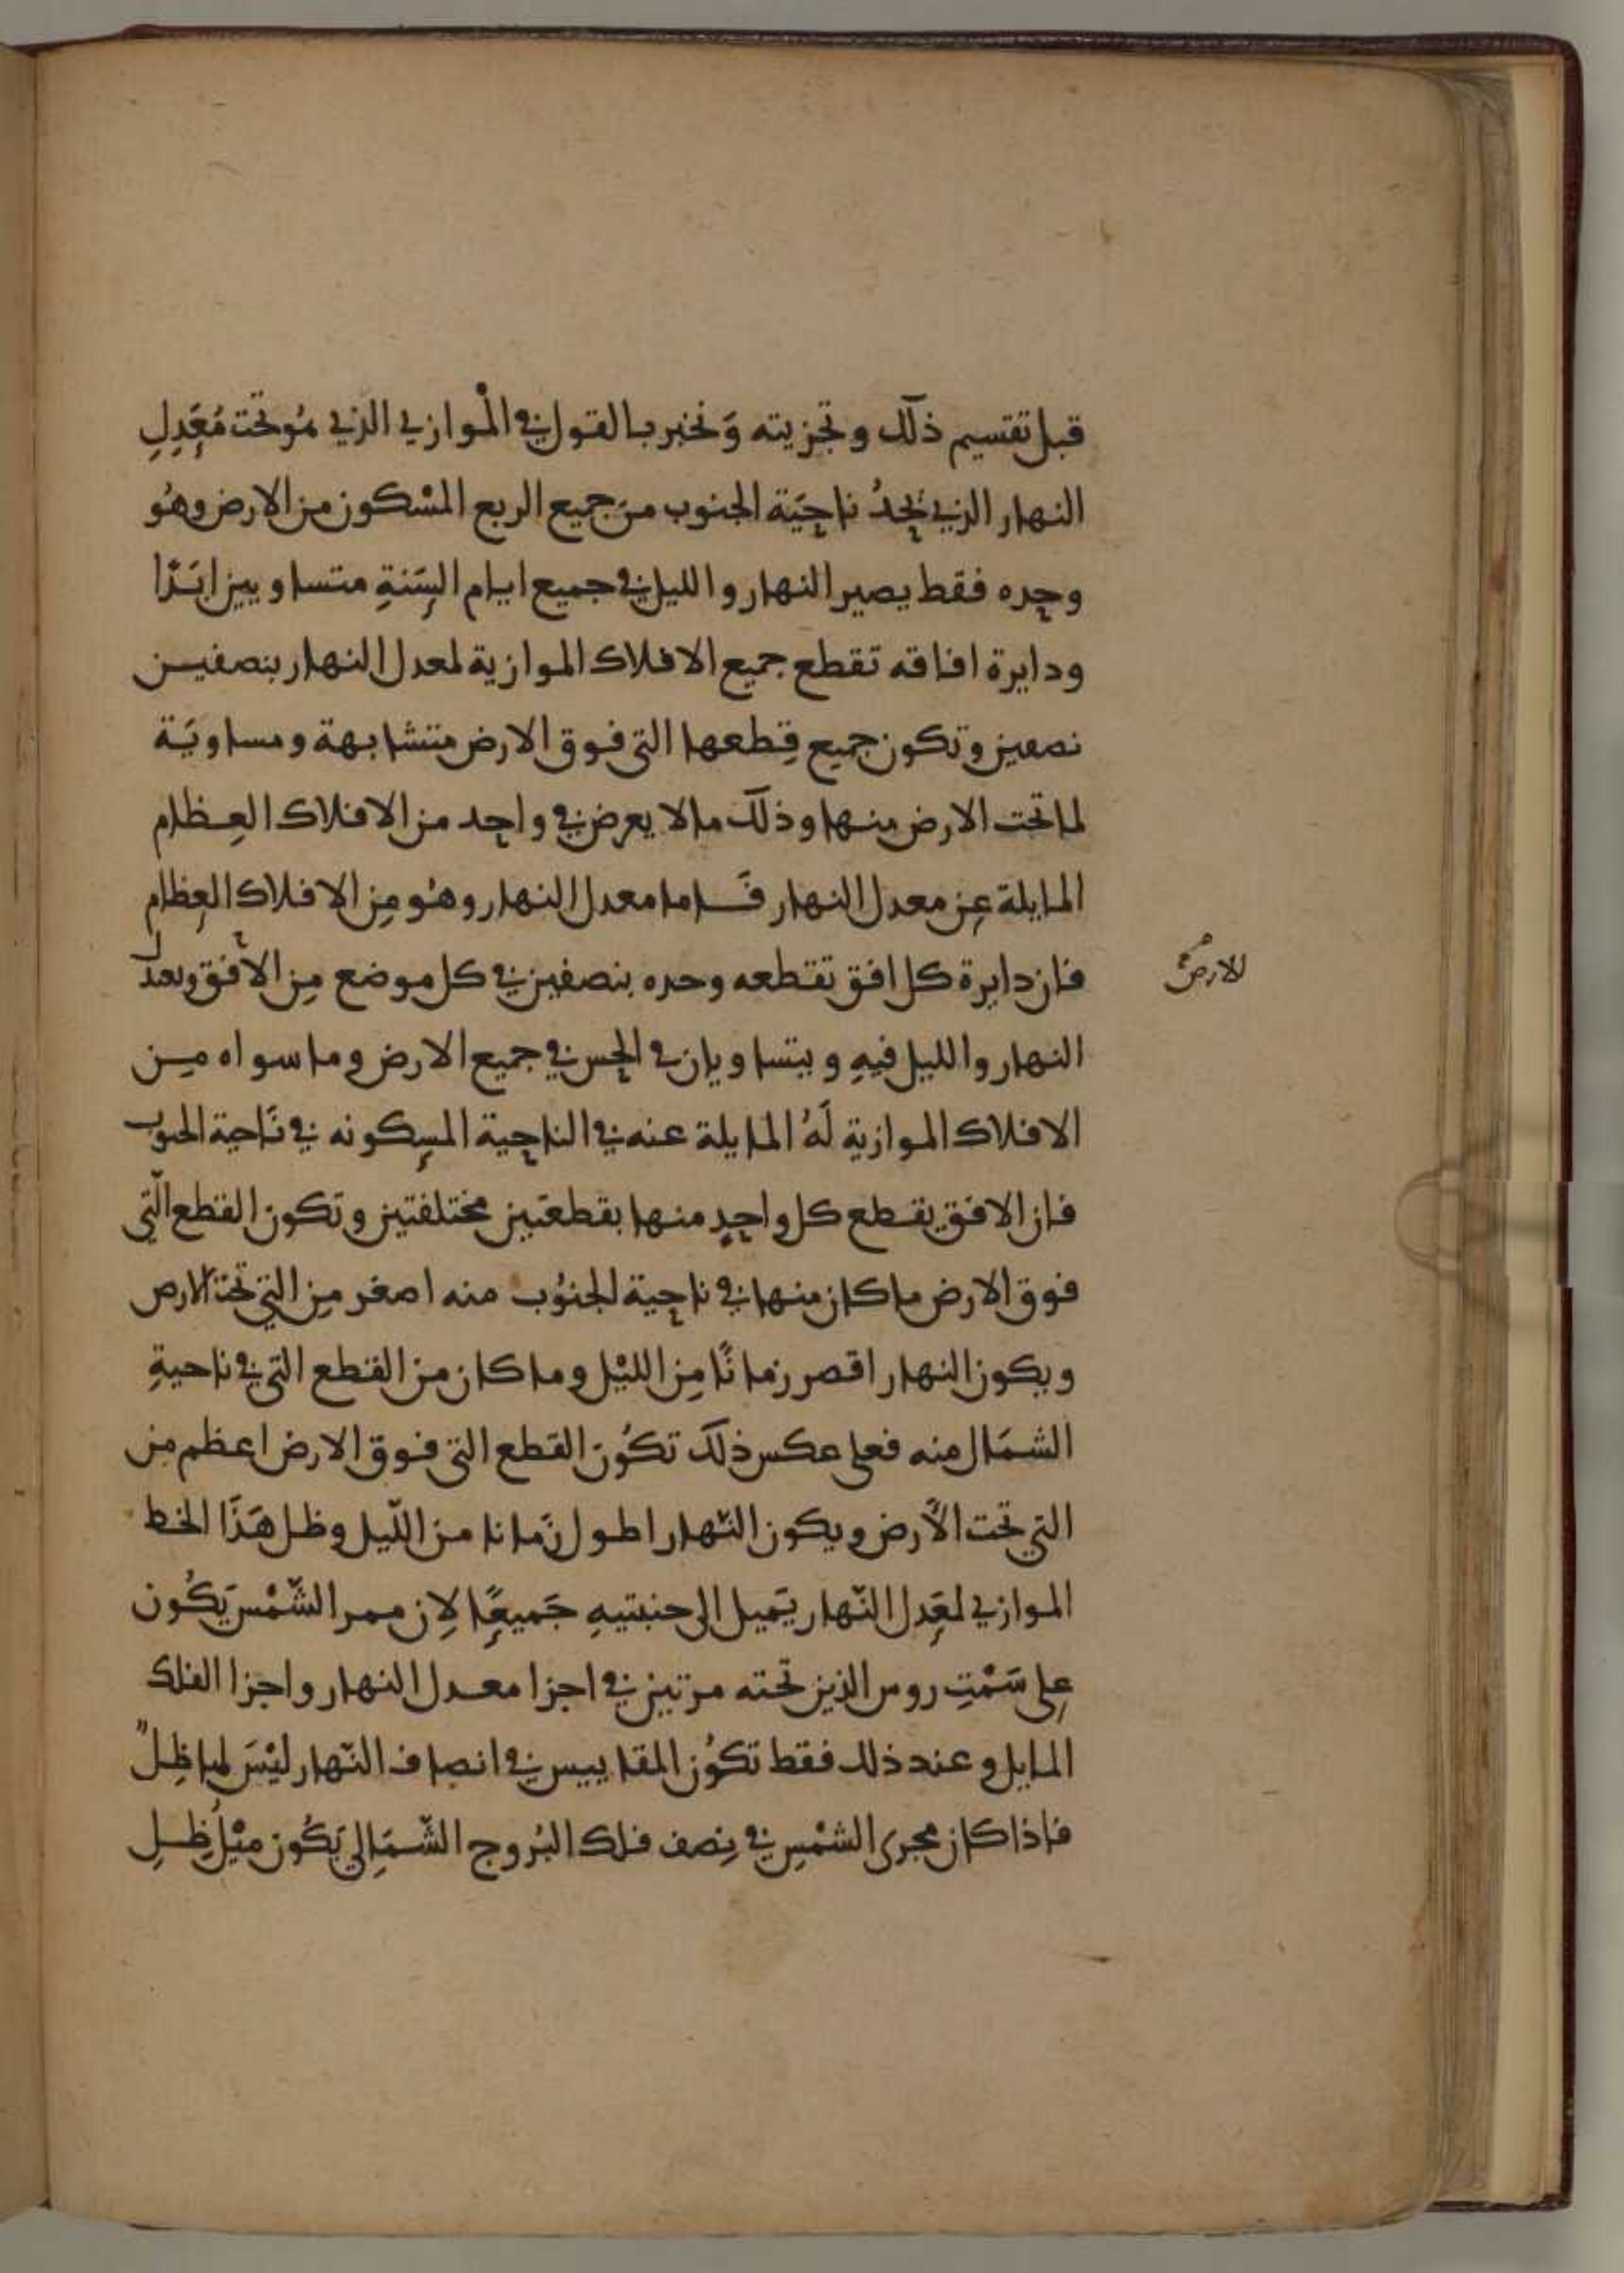 قبل تقسيم ذلك وتجزيته وَنخبر بالقول في الْموازي الذي هُو تحت مُعَدِلِ
النهار الذي يَحِدُ ناحِيَة الجنوب من جميع الربع المسْكون من الارض وهُو
وحده فقط يصير النهار والليل في جميع ايام السَنةِ متساويين ابَدًا
ودايرة افاقه تقطع جميع الافلاك الموازية لمعدل النهار بنصفيـن
نصفين وتكون جميع قِطعها التي فوق الارض متشابهة ومساويَة
لما تحت الارض منها وذلك ما لا يعرض في واحد من الافلاك العِظام
المايلة عن معدل النهار فَـاما معدل النهار وهُو مِن الافلاك العِظام
فان دايرة كل افق تقطعه وحده بنصفين في كل موضع مِن الأفق ويعدل
للارض
النهار والليل فيهِ ويتساويان في الحِس في جميع الارض وما سواه مِـن
الافلاك الموازية لَهُ المايلة عنه في الناحية المسكونه في نَاحية الجنوب
فان الافق يقـطع كل واحدٍ منها بقطعَتين مختلفتين وتكون القطع الَّتي
فوق الارض ما كان منها في ناحية الجنُوب منه اصغر مِن التي تحت الارض
ويكون النهار اقصر زمانًا مِن الليْل وما كان من القطع التي في ناحيةِ
الشمَال منه فعلى عكس ذلك تكُون القطع التي فوق الارض اعظم من
التي تحت الأَرض ويكون النّهار اطول زَمانا من اللّيل وظل هَذَا الخط
الموازي لمعَدل النّهار يَميل الى جنبتيهِ جَميعًا لِان ممر الشّمْس يَكُون
على سَمْتِ روس الذين تحته مرتين في اجزا معـدل النهار واجزا الفلك
المايل وعند ذلك فقط تكُون المقاييس في انصاف النّهار ليْسَ لها ظِلٌ
فاذا كان مجرى الشمْسِ في نِصف فلك البُروج الشّمَالي يَكُون ميْلُ ظِـلِ